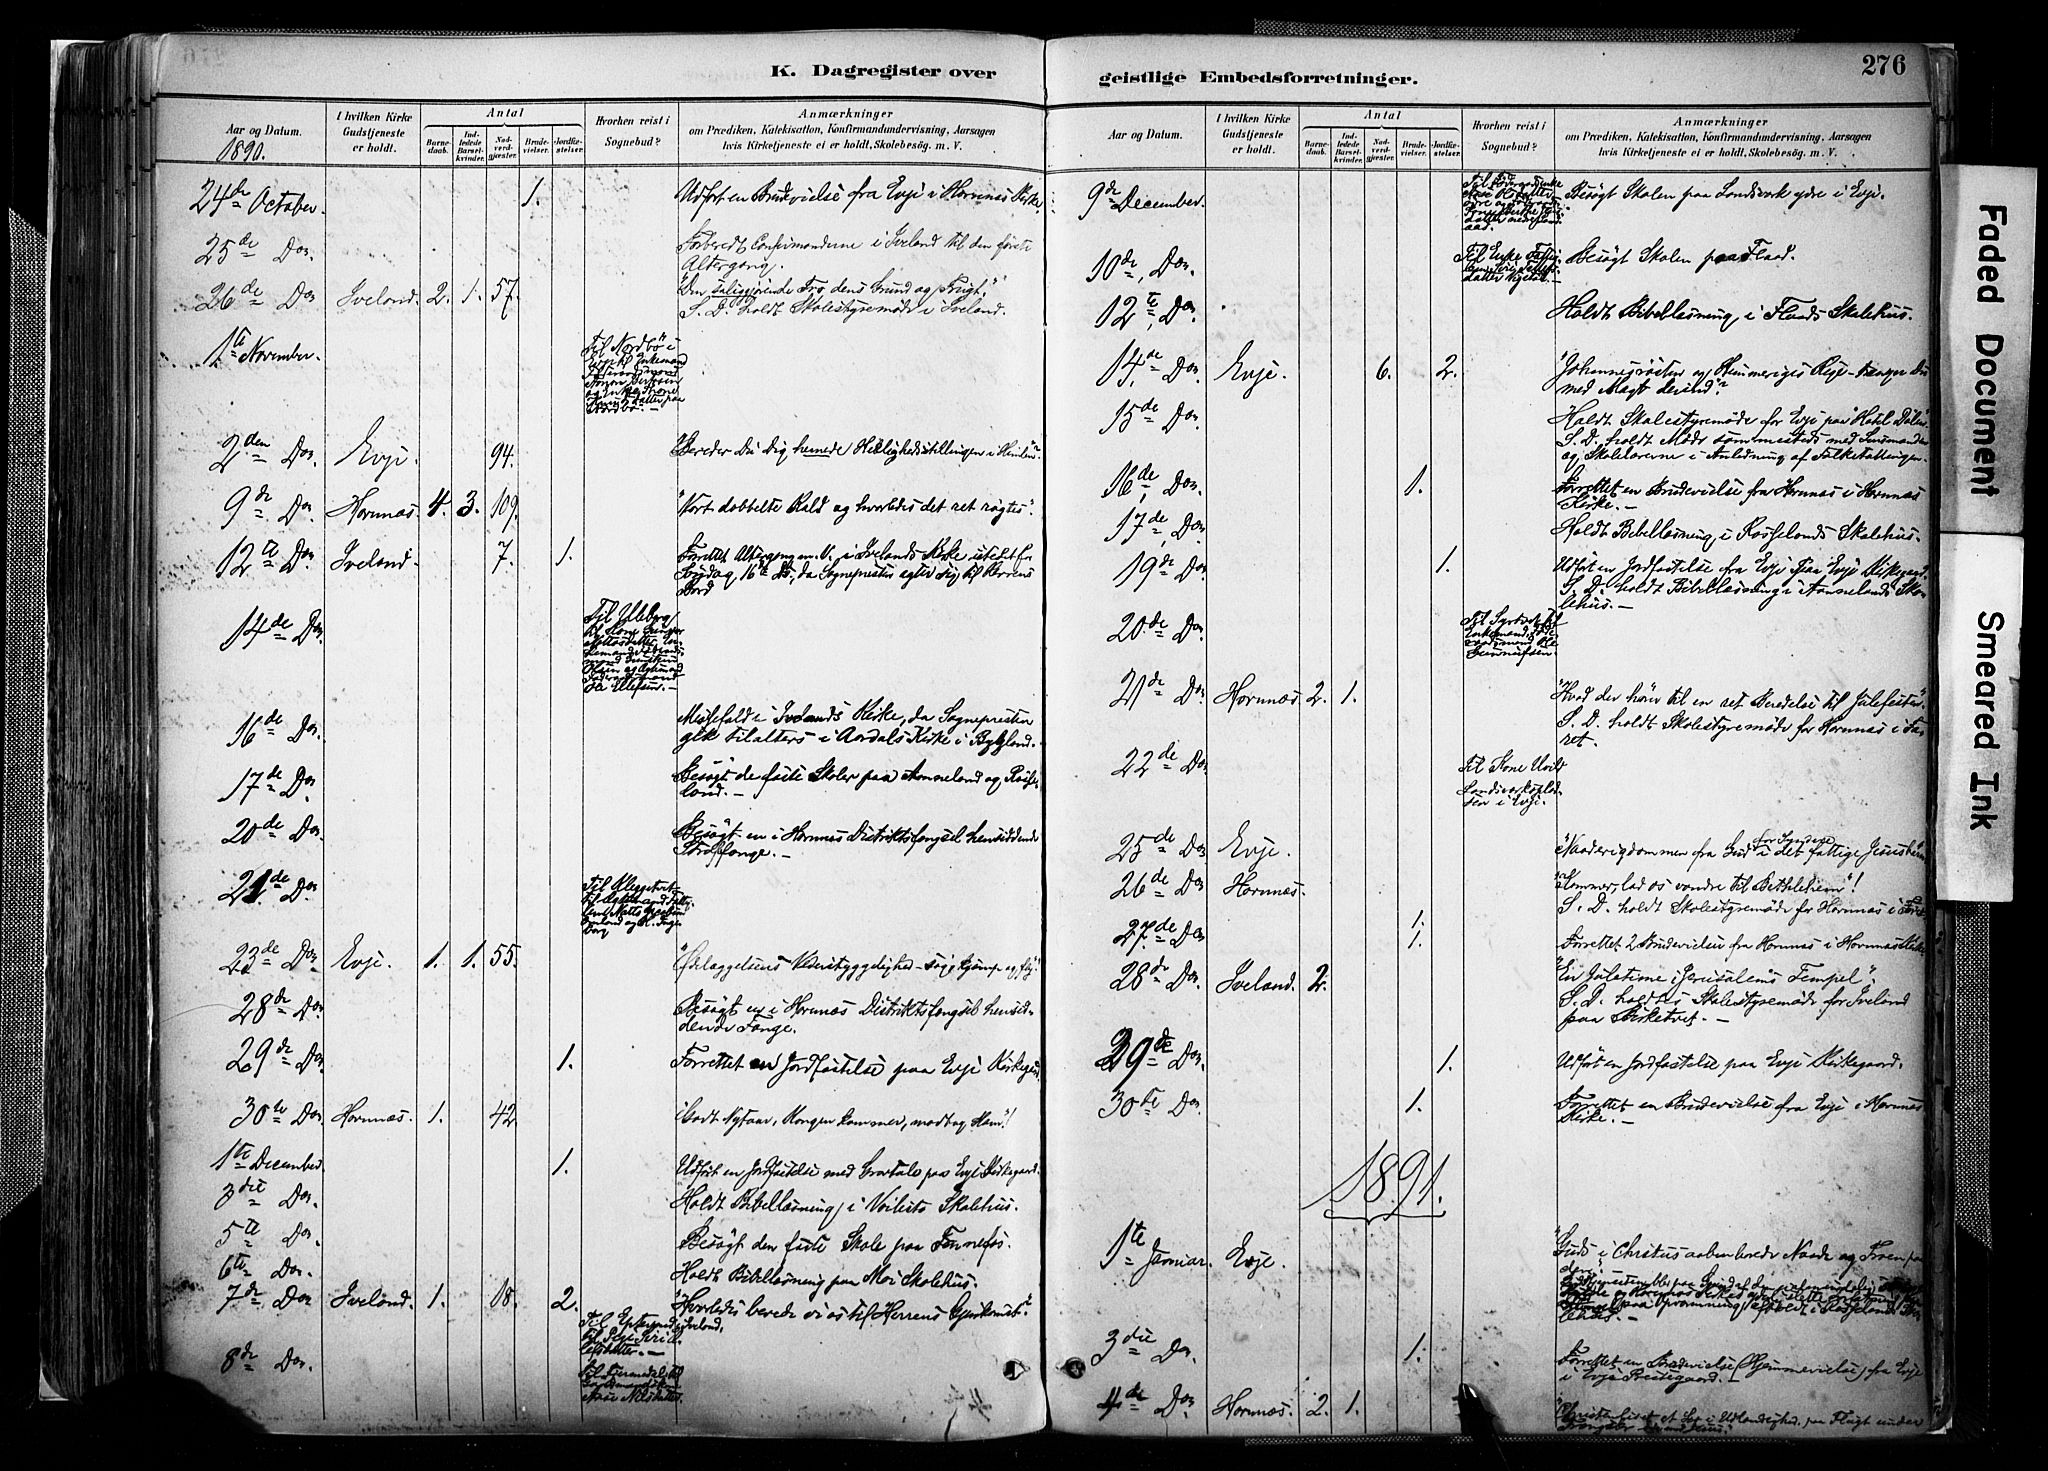 K. Dagregister over
geistlige Embedsforretninger.
276
Aar og Datum.
1890.
I hvilken Kirke
Gudstjeneste
er holdt.
Antal
Barne-
daab.
Ind-
ledede
Barsel-
kvinder.
Nad-
verd-
gjæster.
Brude-
vielser.
Jordfæ-
stelser.
Hvorhen reist i
Sognebud?
Anmærkninger
om Prædiken, Katekisation, Konfirmandundervisning, Aarsagen
hvis Kirketjeneste ei er holdt, Skolebesøg. m. V.
24de October. 1. Udført en Brudevielse fra Evje i Hornnæs Kirke.
25de Do. Forberedt Confirmanderne i Iveland til den første
Altergang.
26de Do Iveland. 2. 1. 57. "Den saliggjørende Tro dens Grund og Frugt."
S. D. holdt Skolestyremøde i Iveland.
1te November. Til Nordbø i
2den Do. Evje. 94. "Bereder Du Dig hernede Herlighedsstillingen i Himlen"?
9de Do. Hornnæs. 4. 3. 109. "Vort dobbelte Kald og hvorledes det ret røgtes".
12te Do. Iveland. 7. 1. Forrettet Altergang m. V. i Ivelands Kirke istedetfor
Søndag 16de Ds., da Sognepresten agter sig til Herrens
Bord
14de Do. Til Uleberg
16de Do. Messefald i Ivelands Kirke, da Sognepresten
gik tilalters i Aardals Kirke i Bygland.
17de Do. Besøgt de faste Skoler paa Aanneland og Rosse-
land. —
20de Do. Besøgt en i Hornnæs Distriktsfængsel hensiddende
Straffange. —
21de Do.
23de Do. Evje. 1. 1. 55. "Ødelæggelsens Vederstyggelighed –
28de Do. Besøgt en i Hornnæs Distriktsfængsel hensid-
dende Fange.
29de Do. 1. Forrettet en Jordfæstelse paa Evje Kirkegaard.
30te Do. Hornnæs. 1. 42 "Godt Nytaar, Kongen kommer, modtag Ham"!
1te December. 1. Udført en Jordfæstelse med Gravtale paa Evje Kirkegaard.
3die Do. Holdt Bibellæsning i Skolehus.
5te Do. Besøgt den faste Skole paa Fennefos.
6te Do. Holdt Bibellæsning paa Moi Skolehus.
7de Do Iveland. 1. 18. 2. "Hvorledes berede vi os til Herrens Gjenkomst"
8de Do.
Aar og Datum.
I hvilken Kirke
Gudstjeneste
er holdt.
Antal
Barne-
daab.
Ind-
ledede
Barsel-
kvinder.
Nad-
verd-
gjæster.
Brude-
vielser.
Jordfæ-
stelser.
Hvorhen reist i
Sognebud?
Anmærkninger
om Prædiken, Katekisation, Konfirmandundervisning, Aarsagen
hvis Kirketjeneste ei er holdt, Skolebesøg. m. V.
9de December. Besøgt Skolen paa Landsverk ydre i Evje.
10de Do. Besøgt Skolen paa Flaad.
12te Do. Holdt Bibellæsning i Flaads Skolehus.
14de Do. Evje. 6. 2. "Johannesrøsten og Himmeriges Rige – trænger Du
med Magt derind"?
15de Do. Holdt Skolestyremøde for Evje paa Hotel Dølen.
S. D. holdt Møde sammesteds med Lensmanden
og Skolelærerne i Anledning af Folketællingen.
16de Do. 1. Forrettet en Brudevielse fra Hornnæs i Hornnæs
Kirke. —
17de Do. Holdt Bibellæsning i Rosselands Skolehus.
19de Do. 1. Udført en Jordfæstelse fra Evje paa Evje Kirkegaard.
S. D. holdt Bibellæsning i Aannelands Sko-
lehus. —
20de Do.
21de Do. Hornnæs. 2. 1. "Hvad der hører til en ret Beredelse til Julefesten".
S. D. holdt Skolestyremøde for Hornnæs i
22de Do. Til Kone
i Evje.
25de Do Evje. "Naaderigdommen fra Gud for Syndere i det fattige Jesusbarn
26de Do Hornnæs. "Kommer, lad os vandre til Bethlehem"!
S. D. holdt Skolestyremøde for Hornnæs i
27de Do 1.
1. Forrettet 2 Brudevielser fra Hornnæs i Hornnæs Kirke.
28de Do. Iveland. 2. "En Juletime i Jerusalems Tempel".
S. D. holdtes Skolestyremøde for Iveland
paa Birketvet. —
29de Do. 1. Udført en Jordfæstelse paa Evje Kirkegaard.
30te Do. 1. Forrettet en Brudevielse fra Evje i Hornnæs
Kirke. —
1891.
1te Januar. Evje. "Guds i Christus aabenbarede Naade og Troen paa
den."
3die Do. 1. Forrettet en Brudevielse (Hjemmevielse) fra Evje
i Evje Prestegaard. —
4de Do Hornnæs. 2. 1.
Faded Document
Smeared Ink